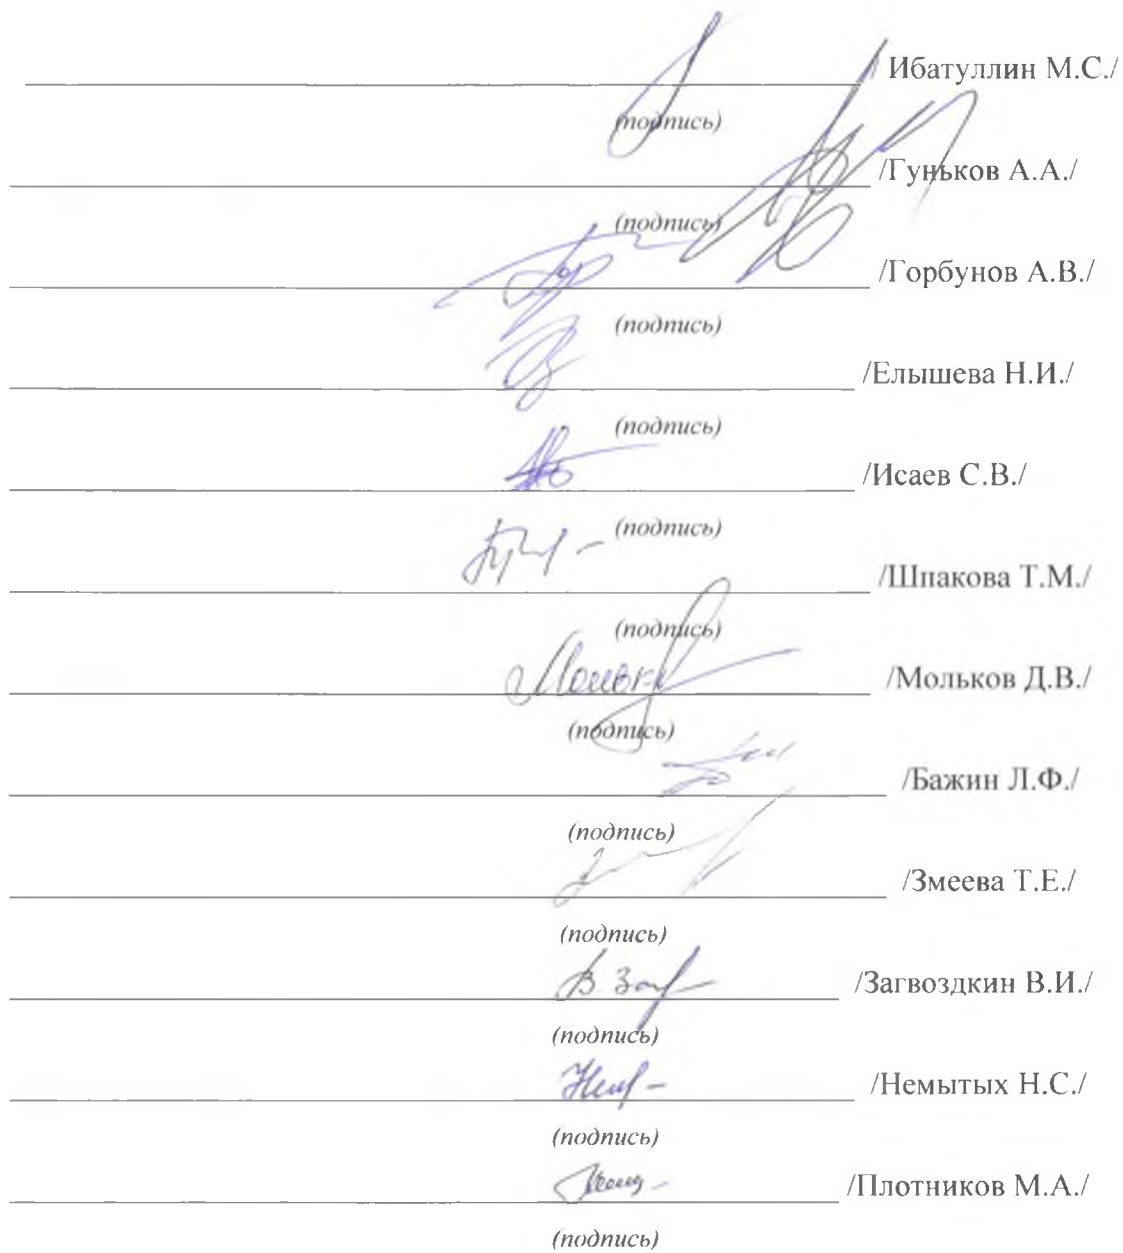 / Ибатуллин М.С./
(подпись)
/Гуньков А.А./
(подпись)
/Горбунов А.В./
(подпись)
/Елышева Н.И./
(подпись)
/Исаев С.В./
(подпись)
/Шпакова Т.М./
(подпись)
/Мольков Д.В./
(подпись)
/Бажин Л.Ф./
(подпись)
/Змеева Т.Е./
(подпись)
В. Заг /Загвоздкин В.И./
(подпись)
/Немытых Н.С./
(подпись)
/Плотников М.А./
(подпись)